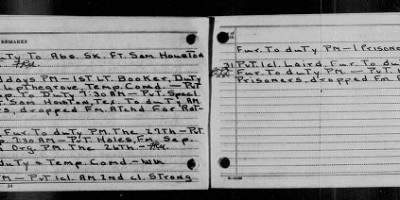 REMARKS
uty To Abs. Sk. Ft. Sam Houston
ddays PM - 1st Lt. Booker, Duty
Upthegrove, Temp. Comd. - Pvt
Duty 1130 AM - Pvt. Specl.
t. Sam Houston, Tex. To duty AM
rs, dropped Fm. Atchd For Rat-
Fur. To duty PM. The 27th - Pvt.
p. 1130 AM - Pvt. Holes, Fm. Sep.
Org PM. The 26th.
duty & Temp. Comd.
PM - Pvt 1cl. AM 2nd cl. Strong
Fur. To duty PM - 1 Prisone
31 Pvt. 1cl. Laird, Fur. To du
Fur. To duty PM - Pvt.
Prisoners, dropped Fm.